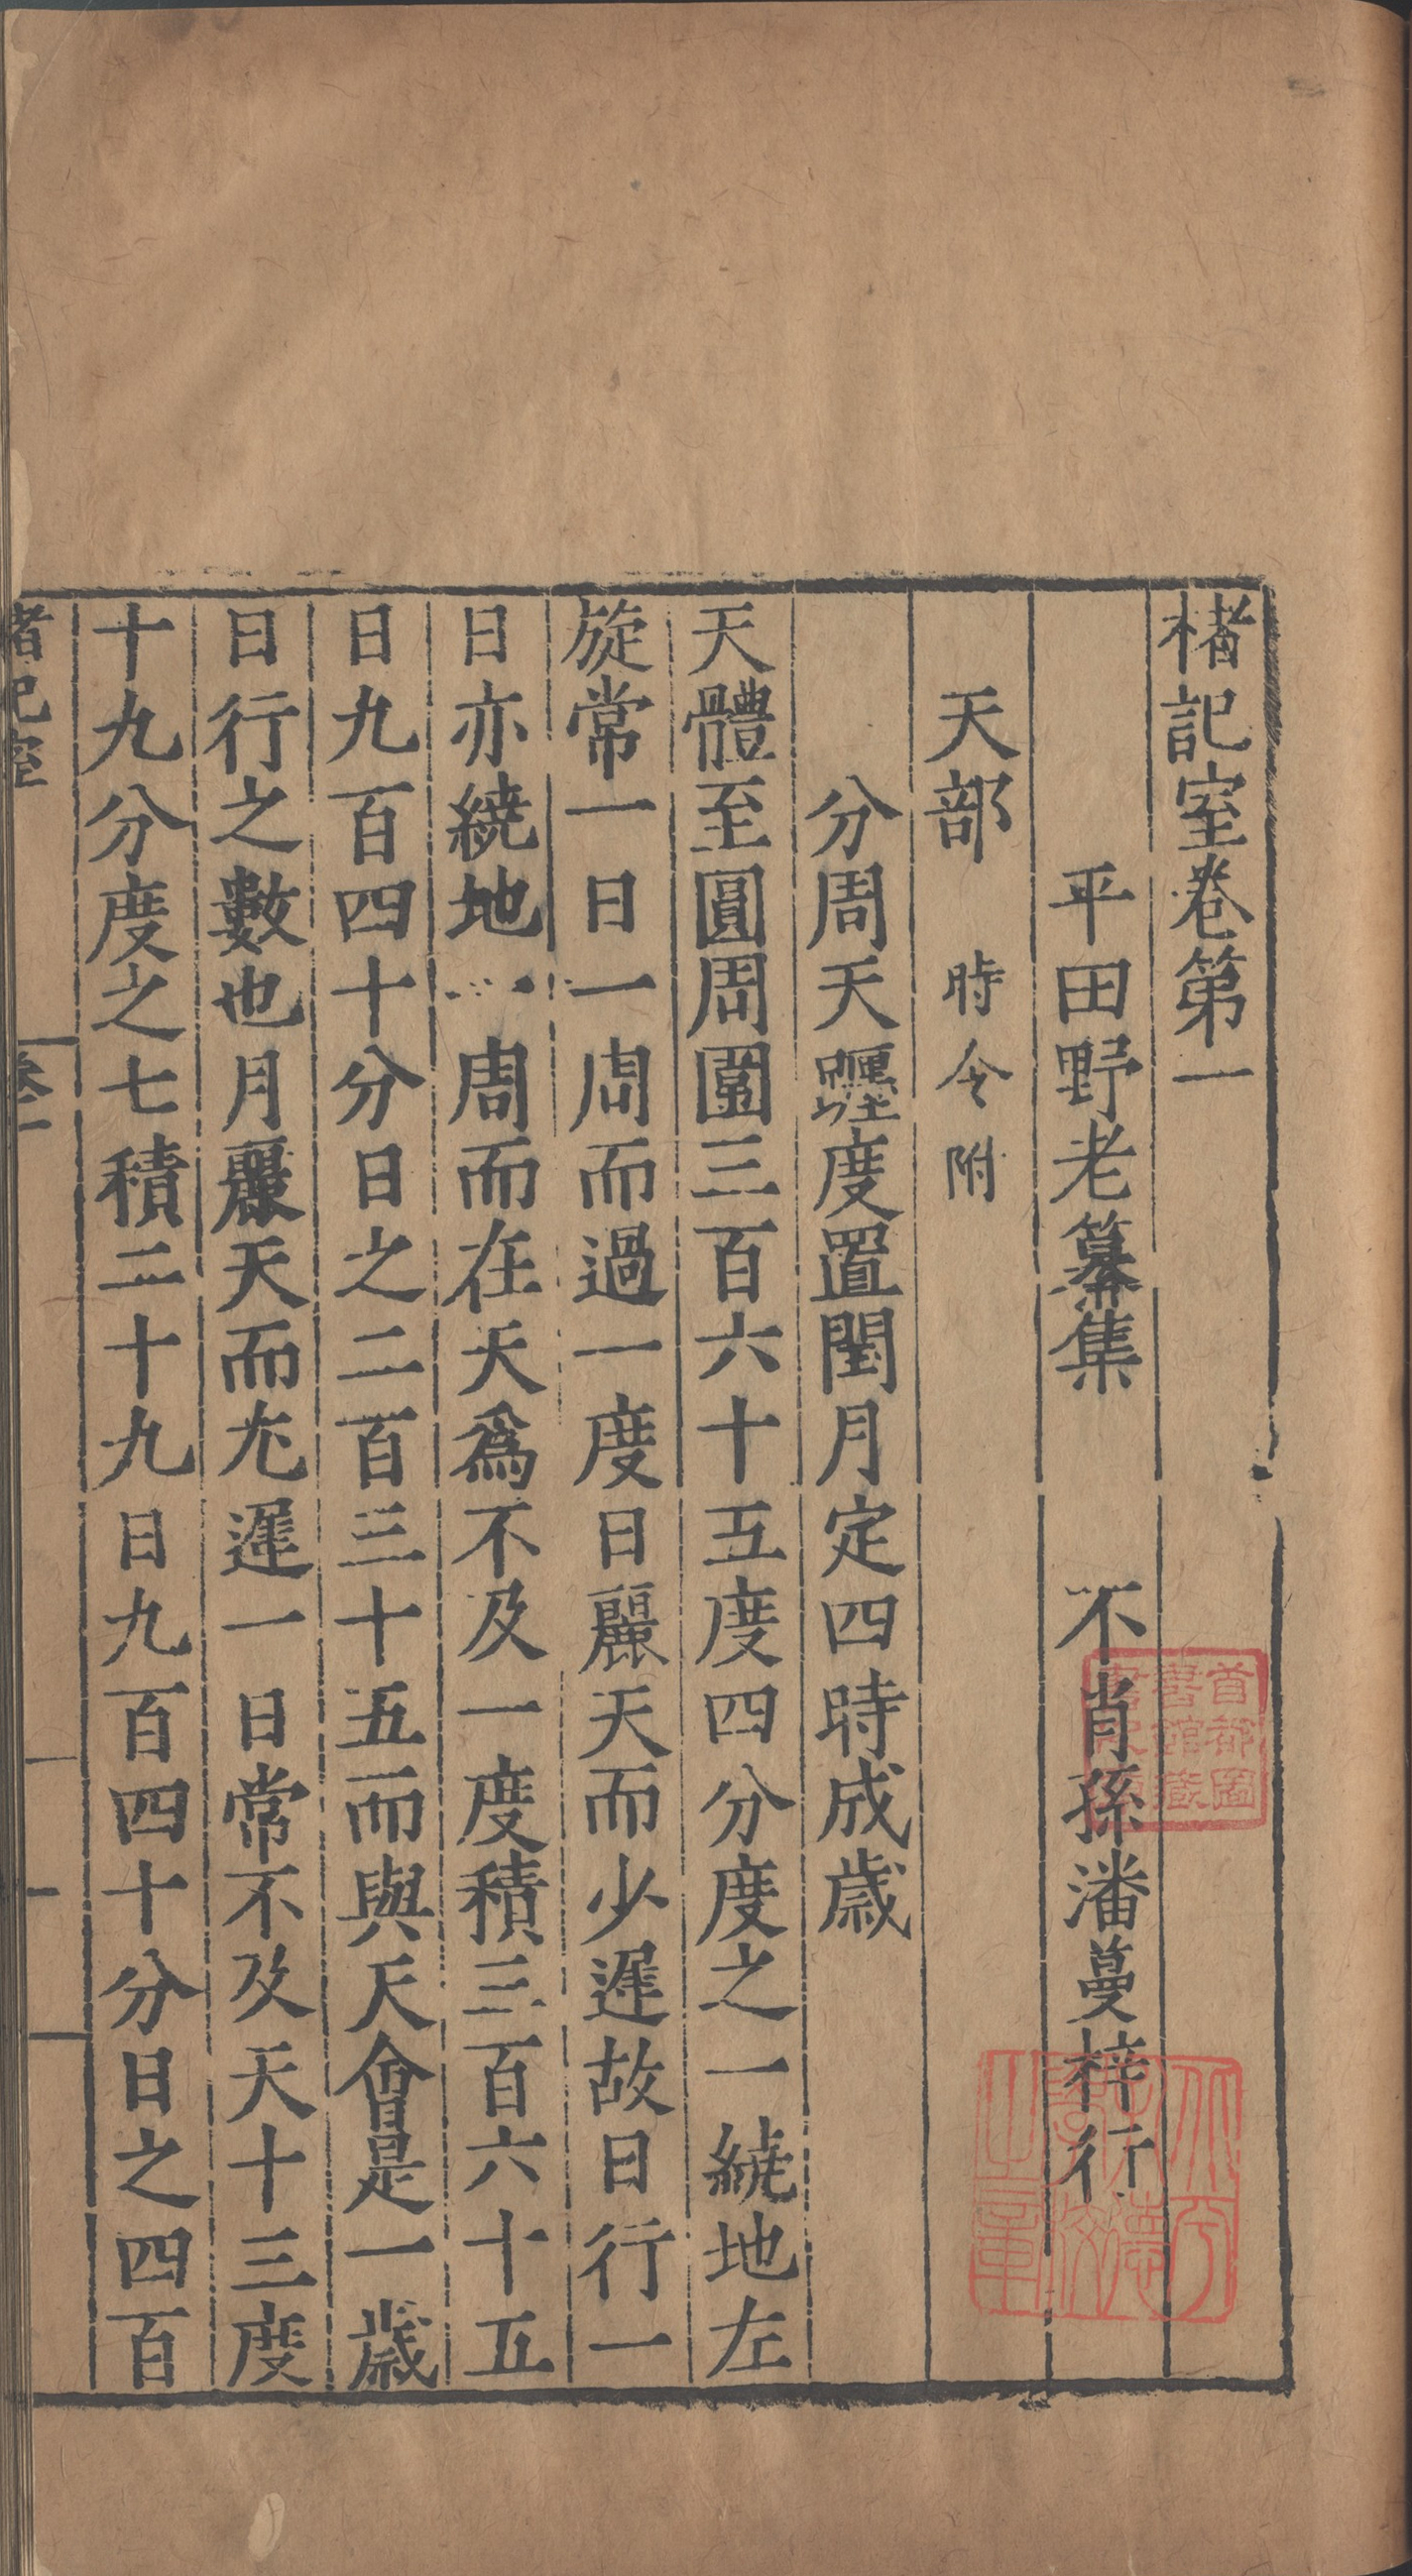 楮記室卷第一
平田野老纂集　不肖孫潘蔓梓行
天部　時令附
分周天躔度置閏月定四時成歲
天體至圓周圍三百六十五度四分度之一繞地左
旋常一日一周而過一度日麗天而少遲故日行一
日亦繞地一周而在天爲不及一度積三百六十五
日九百四十分日之二百三十五而與天會是一歲
日行之數也月麗天而尤遲一日常不及天十三度
十九分度之七積二十九日九百四十分日之四百
楮記室　卷一　一
首都圖書館藏書之章